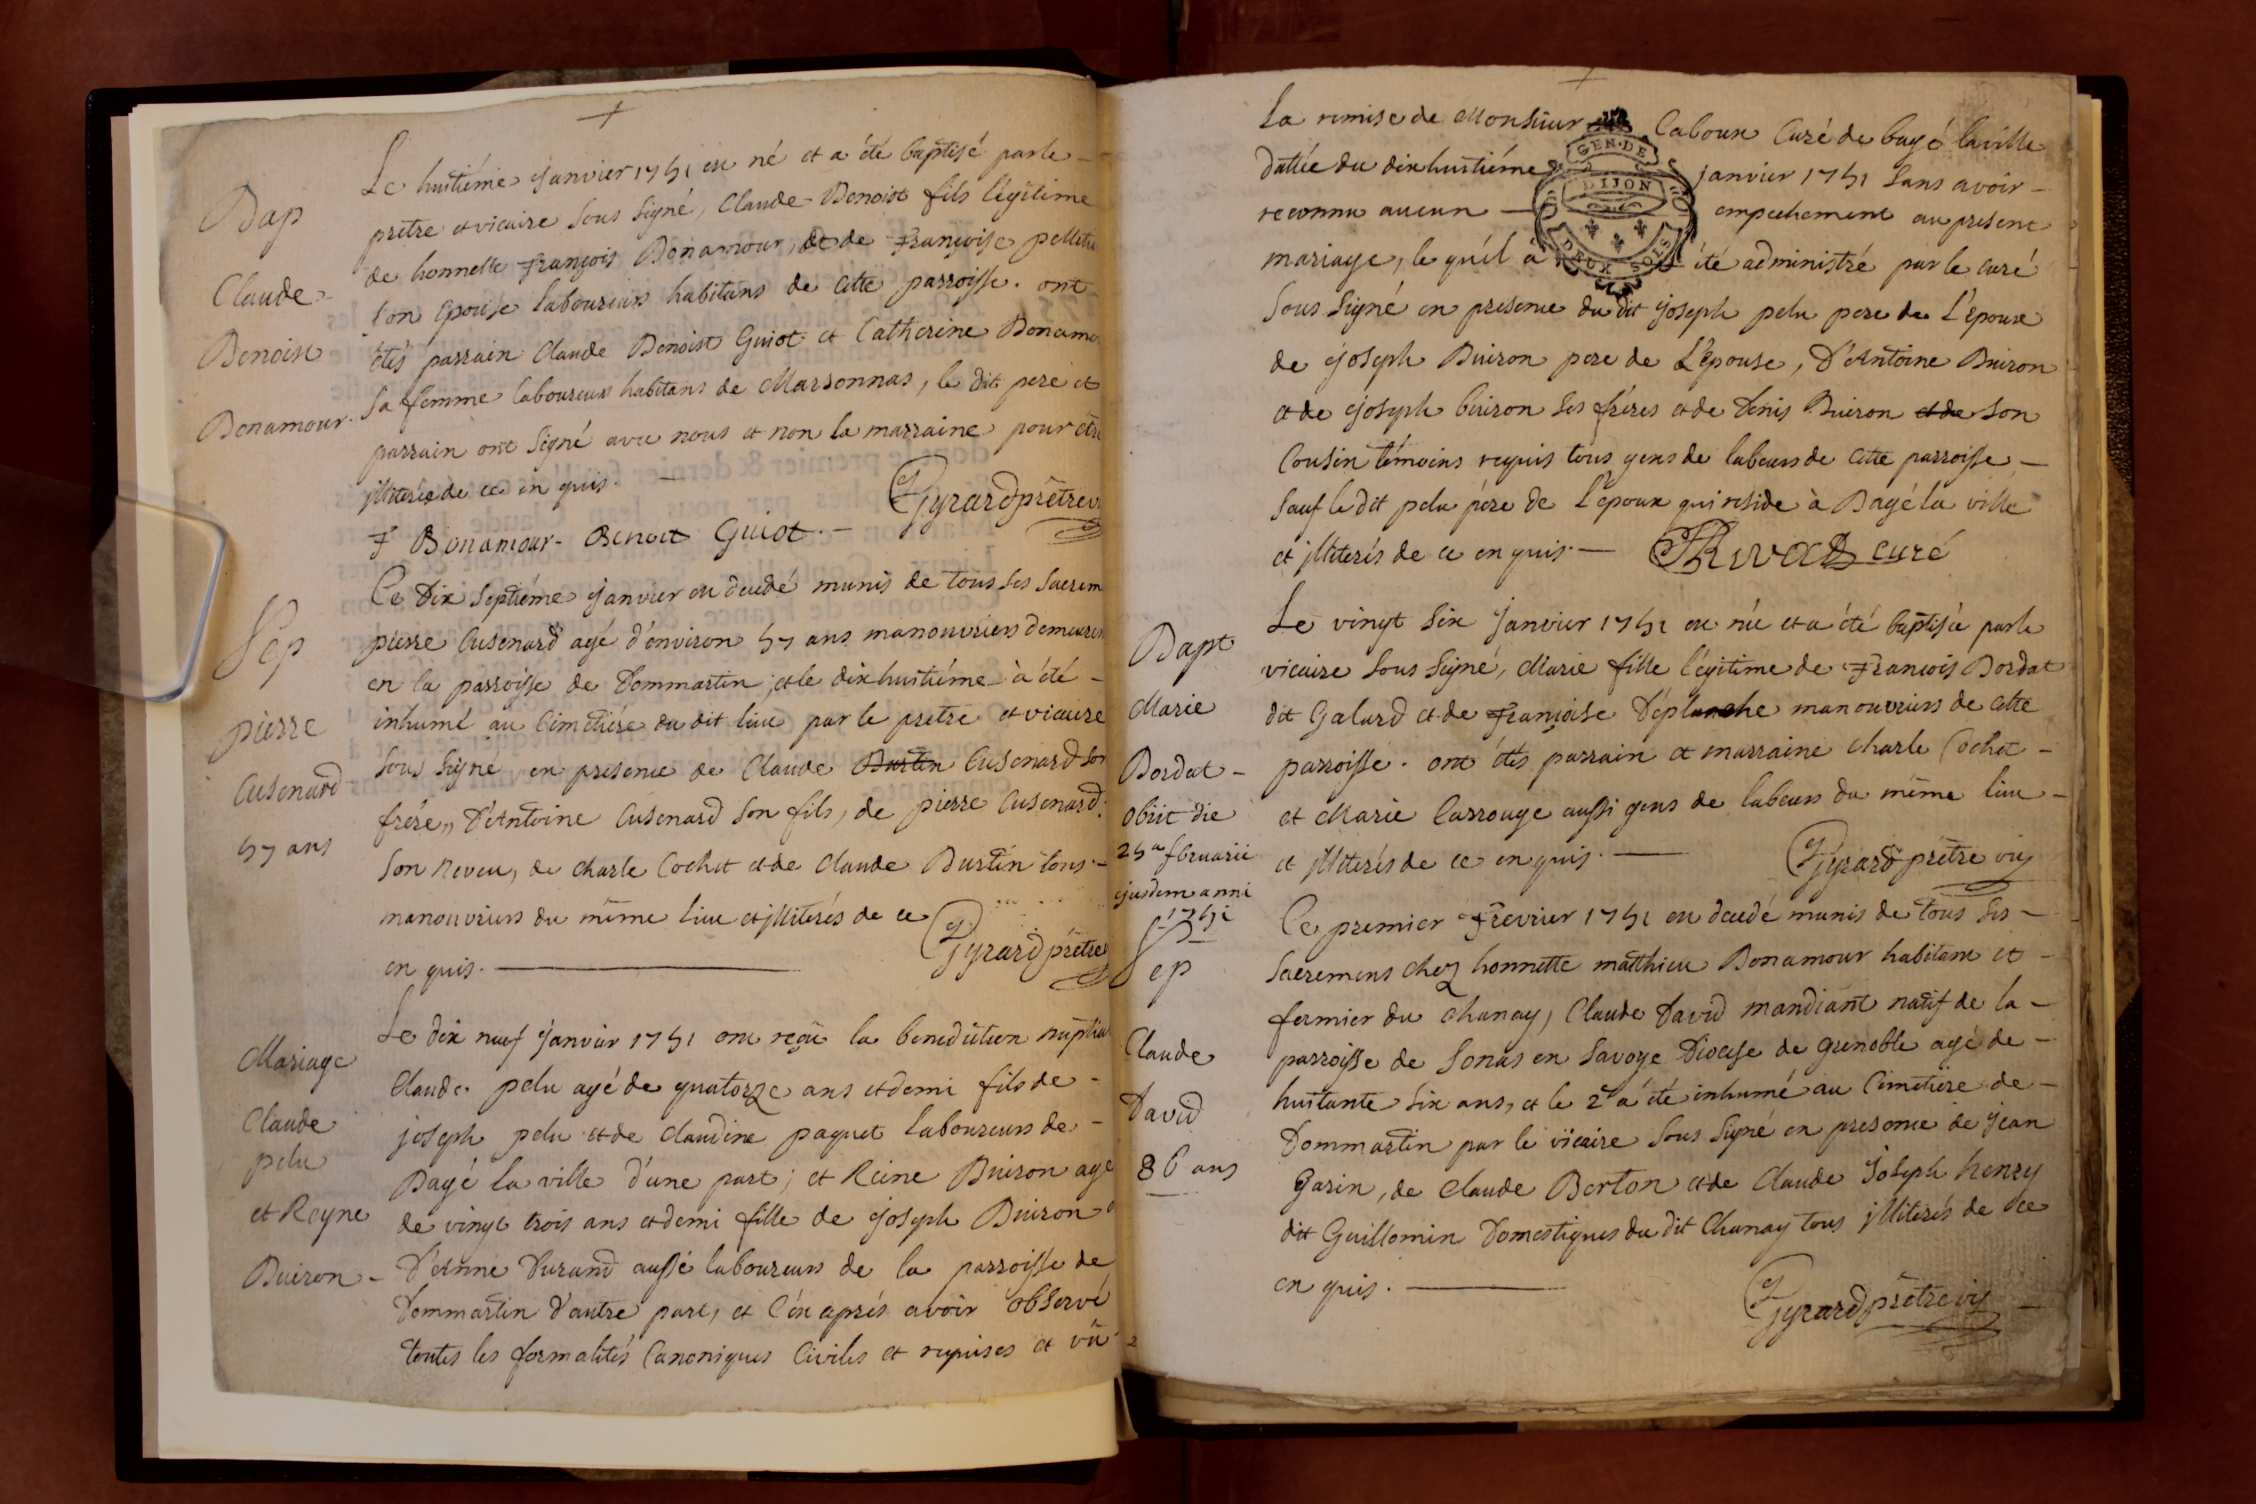 Bap
Claude
Benoist
Bonamour.
Le huitiéme janvier 1751 est né et a été baptisé par le
prêtre et vicaire sous signé, Claude Benoist fils légitime
de honneste françois Bonamour, et de françoise
son épouse laboureurs habitans de cette parroisse. ont
étés parrain Claude Benoist Guiot et Catherine
sa femme laboureurs habitans de Marsonnas, le dit pere et
parrain ont signé avec nous et non la marraine pour
illiterés de ce enquis. —
Gyrard prêtre
f Bonamour - Benoit Guiot. —
Sep
pierre
Cusenard
57 ans
Ce Dix septiéme janvier est decedé munis de tous ses
pierre Cusenard agé d'environ 57 ans manouvriers
en la parroisse de Dommartin, et le dix huitiéme à été -
inhumé au Cimetiére du dit lieu par le pretre et vicaire
sous signé en presence de Claude Burtin Cusenard son
frére, D'Antoine Cusenard son fils, de pierre Cusenard
son neveu, de Charle Cochet et de Claude Burtin tous -
manouvriers du même lieu et illiterés de ce
en quis. —
Gyrard prêtre
Mariage
Claude
pelu
et Reyne
Buiron -
Le dix neuf janvier 1751 ont reçû la benediction
Claude pelu agé de quatorze ans et demi fils de -
joseph pelu et de Claudine paquet laboureurs de -
Bagé la ville d'une part; et Reine Buiron agé
de vingt trois ans et demi fille de joseph Buiron
D'Anne Durand aussi laboureurs de la parroisse de
Dommartin d'autre part, et c'en aprés avoir observé
toutes les formalités Canoniques Civiles et requises et vû
La remise de Monsieur Caloux Curé de bagé la ville
GEN. DE
DIJON
DEUX SOLS
dattée du dix huitiéme janvier 1751 sans avoir -
reconnu aucun — empechement au present
mariage, le quél à été administré par le curé
sous signé en presence du dit joseph pelu pere de L'epoux
de joseph Buiron pere de L'épouse, D'Antoine Buiron
et de joseph buiron ses fréres et de Denis Buiron et de son
Cousin témoins requis tous gens de labeurs de cette parroisse —
sauf le dit pelu pére de l'epoux qui reside à Bagé la ville
et illiterés de ce enquis. —
curé
Bapt
Marie
Bordat -
obiit die
25a februarii
ejusdem anni
1751
Le vingt six janvier 1751 est née et a été baptisée par le
vicaire sous signé, Marie fille légitime de François Bordat
dit Galard et de françoise Déplanche manouvriers de cette
parroisse. ont étés parrain et marraine Charle Cochet -
et Marie Carrouge aussi gens de labeurs du même lieu -
et illiterés de ce enquis. —
Gyrard prêtre vic
Sep
Claude
David
86 ans
Ce premier Fevrier 1751 est decedé munis de tous ses -
sacremens chez honnette matthieu Bonamour habitant et -
fermier du Chanay, Claude David mandiant natif de la -
parroisse de Sonas en Savoye Diocese de Grenoble agé de -
huitante six ans, et le 2e a été inhumé au Cimetiére de -
Dommartin par le vicaire sous signé en presence de jean
Garin, de Claude Berton et de Claude Joseph henry
dit Guillemin Domestiques du dit Chanay tous illiterés de ce
en quis. —
Gyrard prêtre vic